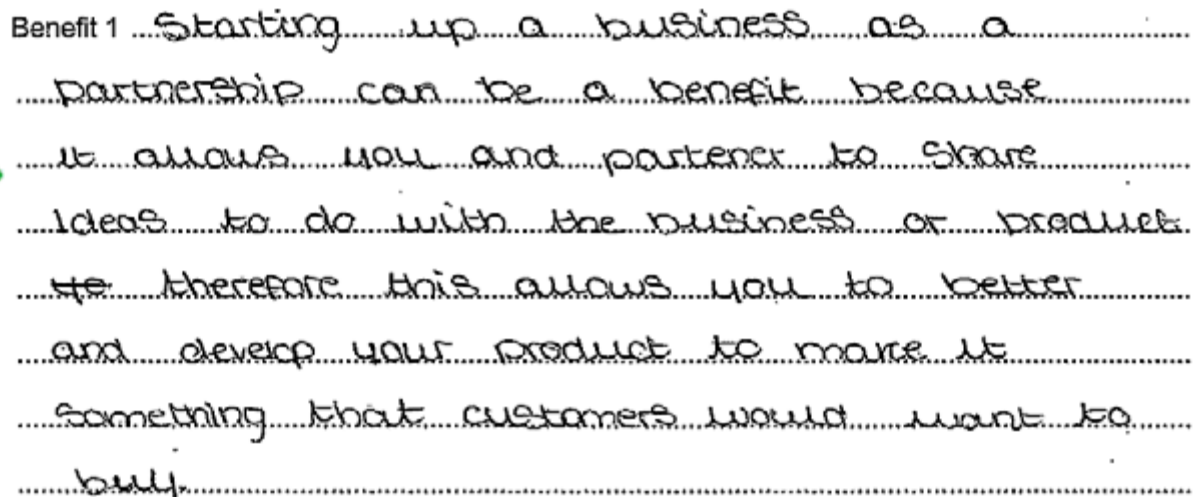 Benefit 1 Starting up a business as a
partnership can be a benefit because
it allows you and partener to share
Ideas to do with the business or product
te therefore this allows you to better
and develop your product to make it
something that customers would want to
buy.